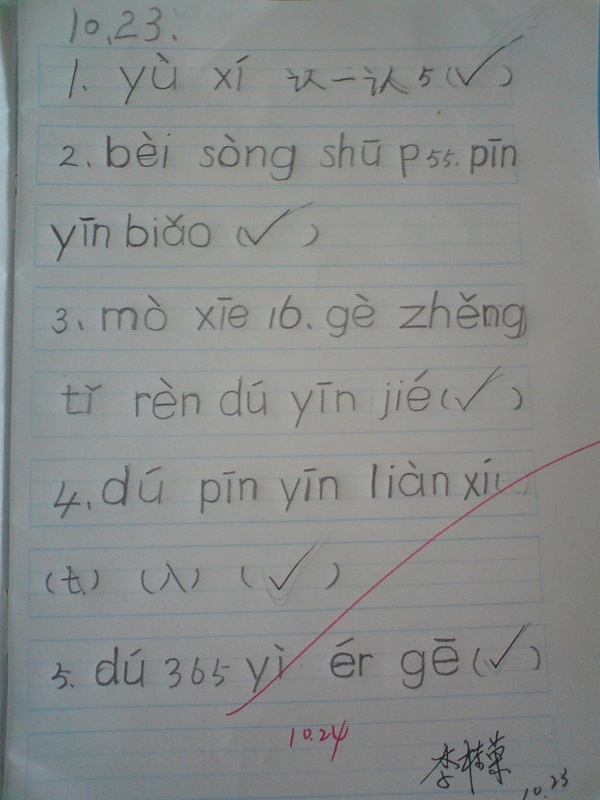 10.23.
1. yù xí 认一认5(✓)
2. bèi sòng shū p55. pīn
yīn biǎo (✓)
3. mò xīe 16. gè zhěng
tǐ rèn dú yīn jié (✓)
4. dú pīn yīn liàn xí
(七) (八) (✓)
5. dú 365 yì ér gē (✓)
10.24
李桂菊
10.23